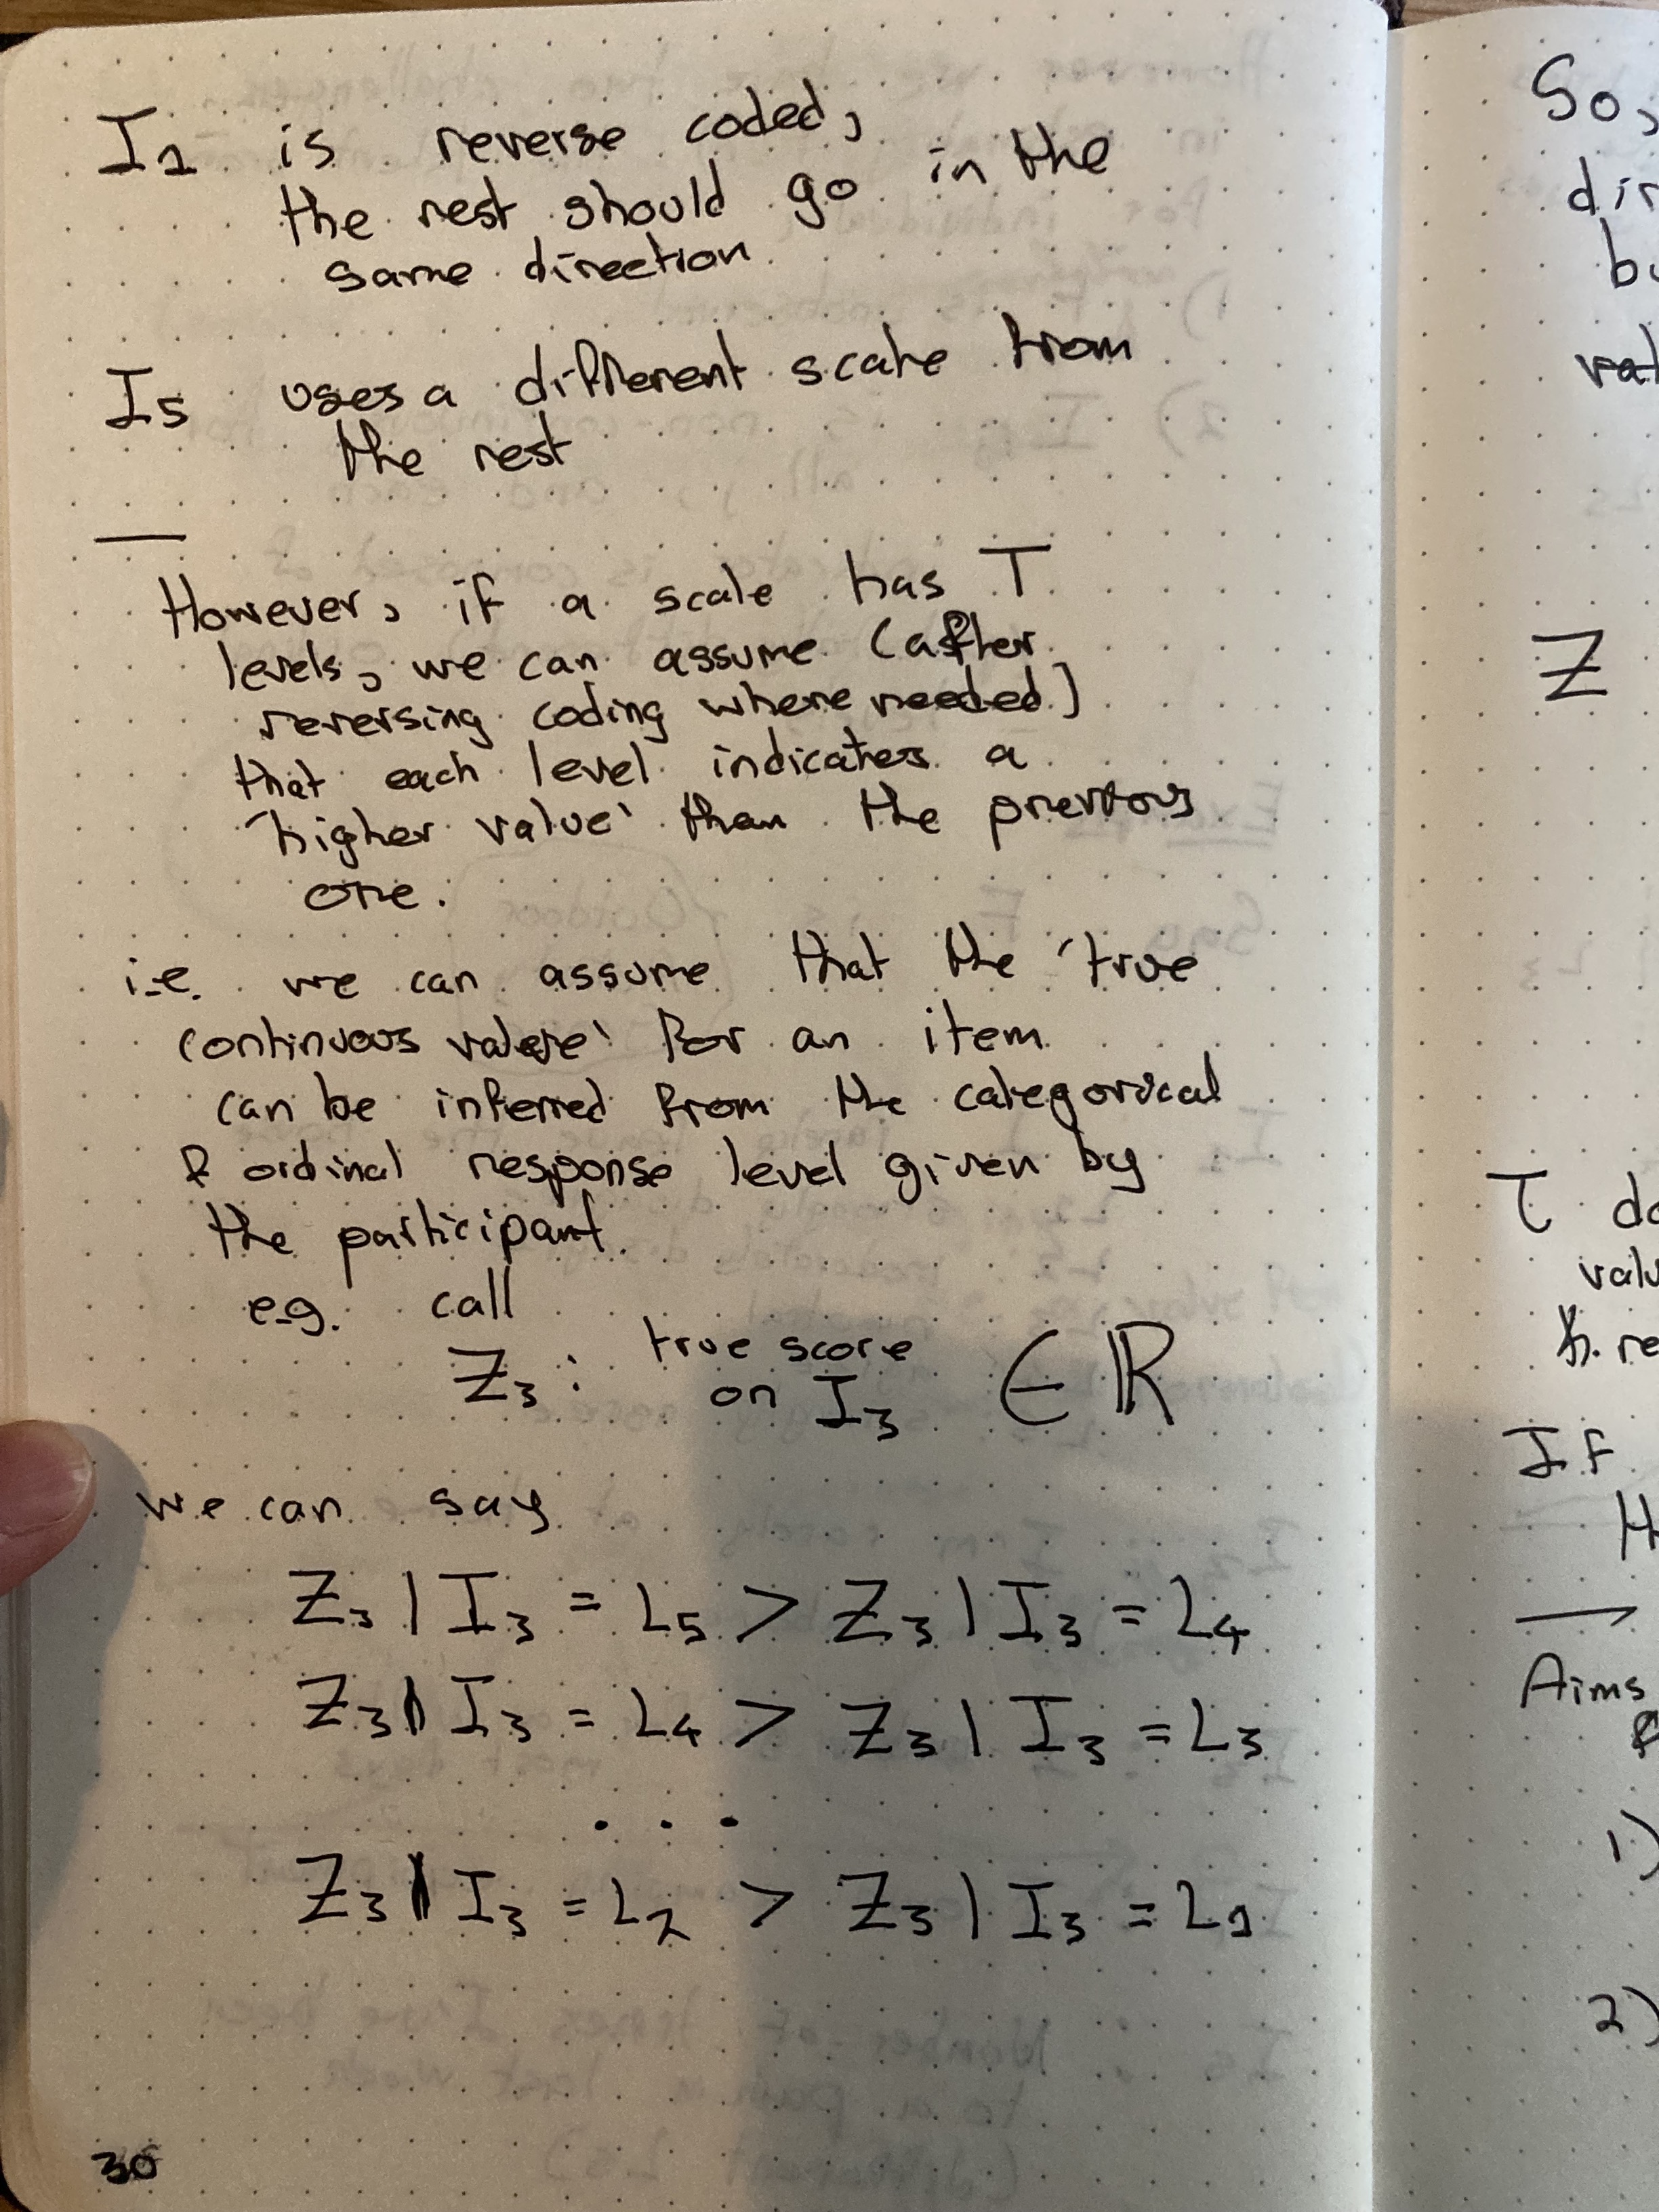 I₁ is reverse coded,
the rest should go in the
same direction
I₅ uses a different scale from
the rest
—
However, if a scale has T
levels, we can assume (after
reversing coding where needed)
that each level indicates a
'higher value' than the previous
one.
i.e. we can assume that the 'true
continuous value' for an item
can be inferred from the categorical
& ordinal response level given by
the participant.
e.g. call
Z₃ : true score
on I₃ ∈ ℝ
we can say
Z₃ | I₃ = L₅ > Z₃ | I₃ = L₄
Z₃ | I₃ = L₄ > Z₃ | I₃ = L₃
. . .
Z₃ | I₃ = L₂ > Z₃ | I₃ = L₁
30
So,
Z
If
Aims
1)
2)